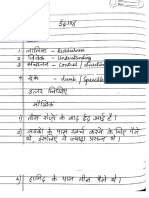 ईदगाह
1) नालिश - Ruddiness
2) विवेक - Understanding
3) संचालन - Control / direction
4) मूक - dumb / Speechless
उत्तर लिखिए
मौखिक
1) तीस रोज़े के बाद ईद आई है।
2) लड़कों के पास खर्च करने के लिए पैसे
थे, इसलिए वे ज्यादा प्रसन्न थे।
3) हामिद के पास तीन पैसे थे।